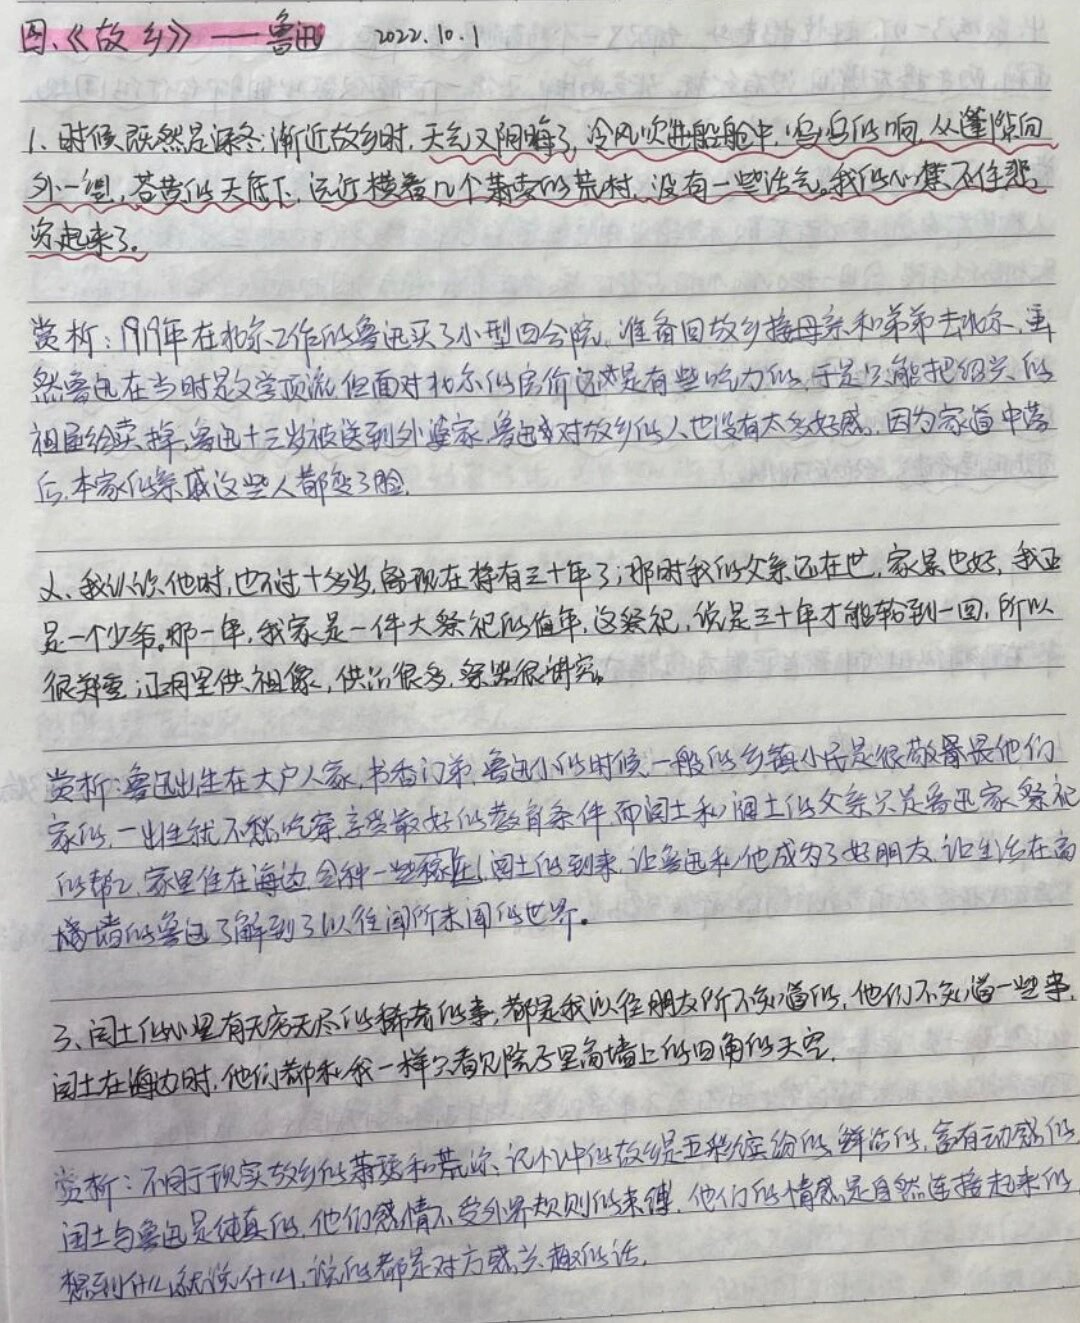 四、《故乡》——鲁迅 2022.10.1
1、时候既然是深冬;渐近故乡时,天气又阴晦了,冷风吹进船舱中,呜呜的响,从蓬隙向
外一望,苍黄的天底下,远近横着几个萧索的荒村,没有一些活气。我的心禁不住悲
凉起来了。
赏析:1919年在北京工作的鲁迅买了小型四合院,准备回故乡接母亲和弟弟去北京,虽
然鲁迅在当时是文学顶流但面对北京的房价还是有些吃力的,于是只能把绍兴的
祖屋给卖掉,鲁迅十三岁被送到外婆家,鲁迅对故乡的人也没有太多好感,因为家道中落
后,本家的亲戚这些人都变了脸,
2、我认识他时,也不过十多岁,离现在将有三十年了;那时我的父亲还在世,家景也好,我正
是一个少爷。那一年,我家是一件大祭祀的值年,这祭祀,说是三十年才能轮到一回,所以
很郑重;正月里供祖像,供品很多,祭器很讲究。
赏析:鲁迅出生在大户人家,书香门第,鲁迅小的时候,一般的乡镇小民是很敬畏他们
家的,一出生就不愁吃穿,享受最好的教育条件,而闰土和闰土的父亲只是鲁迅家祭祀
的帮工,家里住在海边,会种一些稼庄,闰土的到来,让鲁迅和他成为了好朋友,让生活在高
墙的鲁迅了解到了以往闻所未闻的世界。
3、闰土的心里有无穷无尽的稀奇的事,都是我以往朋友所不知道的,他们不知道一些事,
闰土在海边时,他们都和我一样只看见院子里高墙上的四角的天空,
赏析:不同于现实故乡的萧瑟和荒凉,记忆中的故乡是五彩缤纷的,鲜活的,富有动感的,
闰土与鲁迅是纯真的,他们感情不受外界规则的束缚,他们的情感是自然连接起来的,
想到什么就说什么,说的都是对方感兴趣的话,